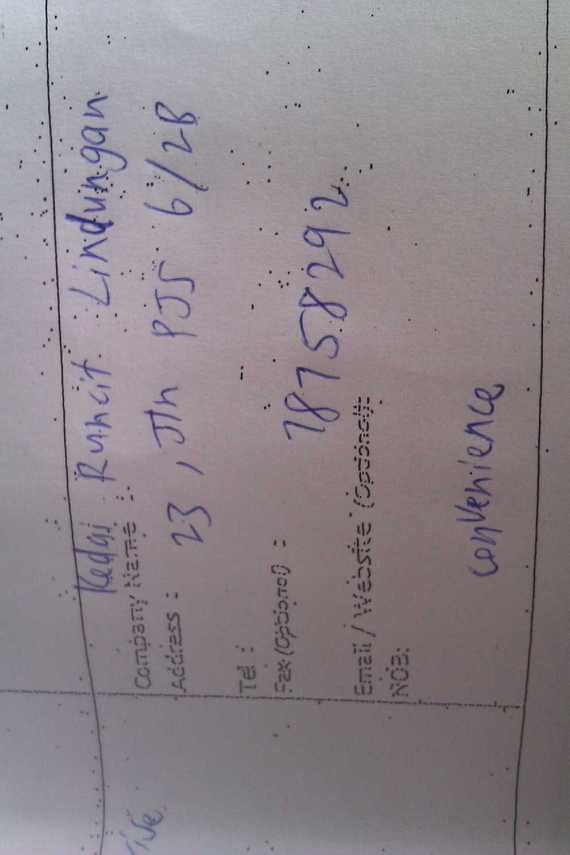 Kedai Runcit Lindungan
Company Name :
23, Jln PJS 6/2B
Address :
Tel :
78758292
Fax (Optional) :
Email / Website (Optional):
NOB:
convenience